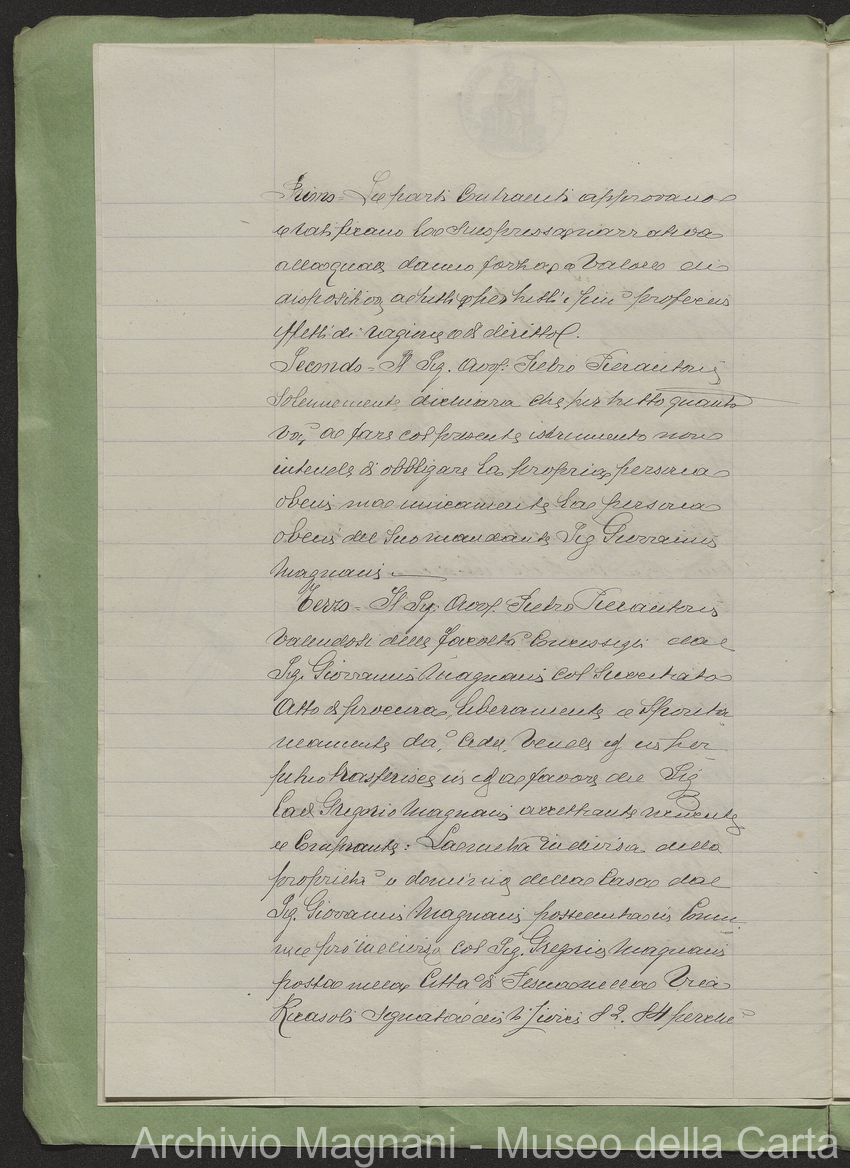 Primo = Le parti Contraenti approvano
e ratificano la suespressa narrativa
alla quale danno forza e valore di
dispositiva a tutti e per tutti i fini proficui
effetti di ragione e di diritto.
Secondo = Il Sig. Avv. Pietro Pierantoni
Solennemente dichiara che per tutto quanto
va, a fare col presente istrumento non
intende di obbligare la propria persona
o beni ma unicamente la persona
o beni del suo mandante Sig Giovanni
Magnani
Terzo = Il Sig. Avv. Pietro Pierantoni
Valendosi delle facoltà Concessegli dal
Sig. Giovanni Magnani col succitato
Atto di procura, liberamente e sponta
neamente dà, Cede, Vende ed in per
petuo trasferisce in ed a favore del Sig
Cav. Gregorio Magnani accettante
e Comprante: La metà indivisa della
proprietà e dominio della Casa dal
Sig. Giovanni Magnani posseduta in Comu
ne e pro indiviso col Sig. Gregorio Magnani
posta nella Città di Pescia nella Via
Ricasoli Segnata dei N. Civici 82. 84 perchè
Archivio Magnani - Museo della Carta